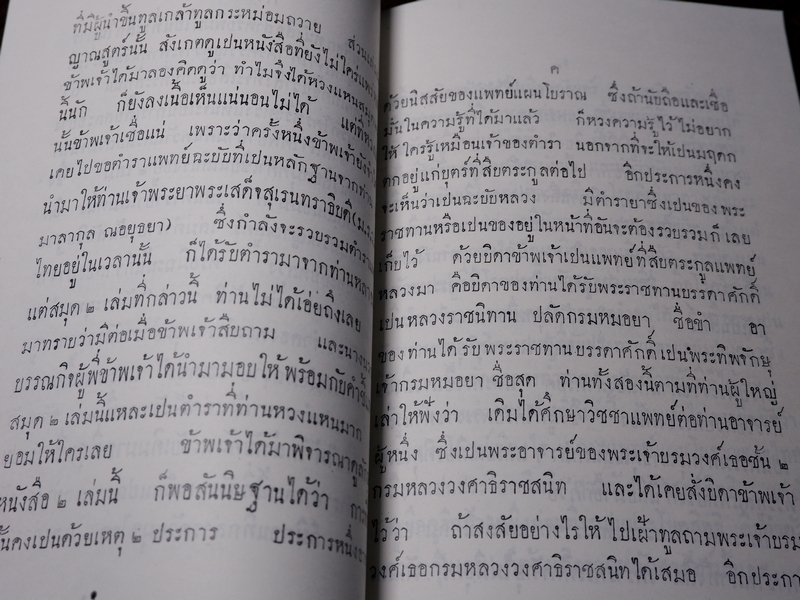 ที่มีผู้นำขึ้นทูลเกล้าทูลกระหม่อมถวาย ส่วน
ญาณสูตร์นั้น สังเกตดูเปนหนังสือที่ยังไม่ใคร่
ข้าพเจ้าได้มาลองคิดดูว่า ทำไมจึงได้หวงแหน
นั้นัก ก็ยังลงเนื้อเห็นแน่นอนไม่ได้ แต่ที่
นั้นข้าพเจ้าเชื่อแน่ เพราะว่าครั้งหนึ่งข้าพเจ้า
เคยไปขอตำราแพทย์ฉะบับที่เปนหลักฐานจาก
นำมาให้ท่านเจ้าพระยาพระเสด็จสุเรนทราธิบดี
มาลากุล ณอยุธยา) ซึ่งกำลังจะรวบรวมตำรา
ไทยอยู่ในเวลานั้น ก็ได้รับตำรามาจากท่าน
แต่สมุด ๒ เล่มที่กล่าวนี้ ท่านไม่ได้เอ่ยถึงเลย
มาทราบว่ามีต่อเมื่อข้าพเจ้าสืบถาม และ
บรรณกิจผู้พี่ข้าพเจ้าได้นำมามอบให้ พร้อมกับ
สมุด ๒ เล่มนี้แหละเปนตำราที่ท่านหวงแหนมาก
ยอมให้ใครเลย ข้าพเจ้าได้มาพิจารณาดู
หนังสือ ๒ เล่มนี้ ก็พอสันนิษฐานได้ว่า
นั้นคงเปนด้วยเหตุ ๒ ประการ ประการหนึ่ง
ค
ด้วยนิสสัยของแพทย์แผนโบราณ ซึ่งถ้านับถือและเชื่อ
มั่นในความรู้ที่ได้มาแล้ว ก็หวงความรู้ไว้ ไม่อยาก
ให้ ใครรู้เหมือนเจ้าของตำรา นอกจากที่จะให้เปนมฤดก
ตกอยู่แก่บุตร์ที่สืบตระกูลต่อไป อีกประการหนึ่งคง
จะเห็นว่าเปนฉะบับหลวง มีตำรายาซึ่งเปนของพระ
ราชทานหรือเปนของอยู่ในหน้าที่อันจะต้องรวบรวมก็ เลย
เก็บไว้ ด้วยบิดาข้าพเจ้าเปนแพทย์ที่สืบตระกูลแพทย์
หลวงมา คือบิดาของท่านได้รับพระราชทานบรรดาศักดิ์
เปนหลวงราชนิทาน ปลัดกรมหมอยา ชื่อขำ อา
ของท่านได้รับพระราชทานบรรดาศักดิ์เปนพระทิพจักษุ
เจ้ากรมหมอยา ชื่อสุด ท่านทั้งสองนี้ตามที่ท่านผู้ใหญ่
เล่าให้ฟังว่า เดิมได้ศึกษาวิชชาแพทย์ต่อท่านอาจารย์
ผู้หนึ่ง ซึ่งเปนพระอาจารย์ของพระเจ้าบรมวงศ์เธอชั้น ๒
กรมหลวงวงศาธิราชสนิท และได้เคยสั่งบิดาข้าพเจ้า
ไว้ว่า ถ้าสงสัยอย่างไรให้ไปเฝ้าทูลถามพระเจ้าบรม
วงศ์เธอกรมหลวงวงศาธิราชสนิทได้เสมอ อีกประกา